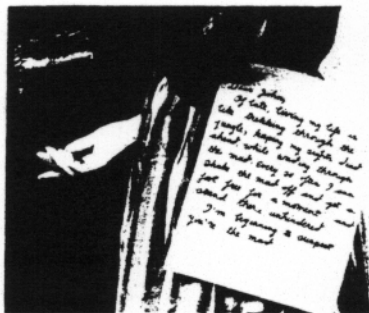 Dear John,
Of late, living my life is
like trekking through the
jungle, hoping my sights clear
ahead while wading through
the mud. Every so often I can
shake the mud off and get a
foot free for a moment and
stand there unhindered
I'm beginning to suspect
you're the mud